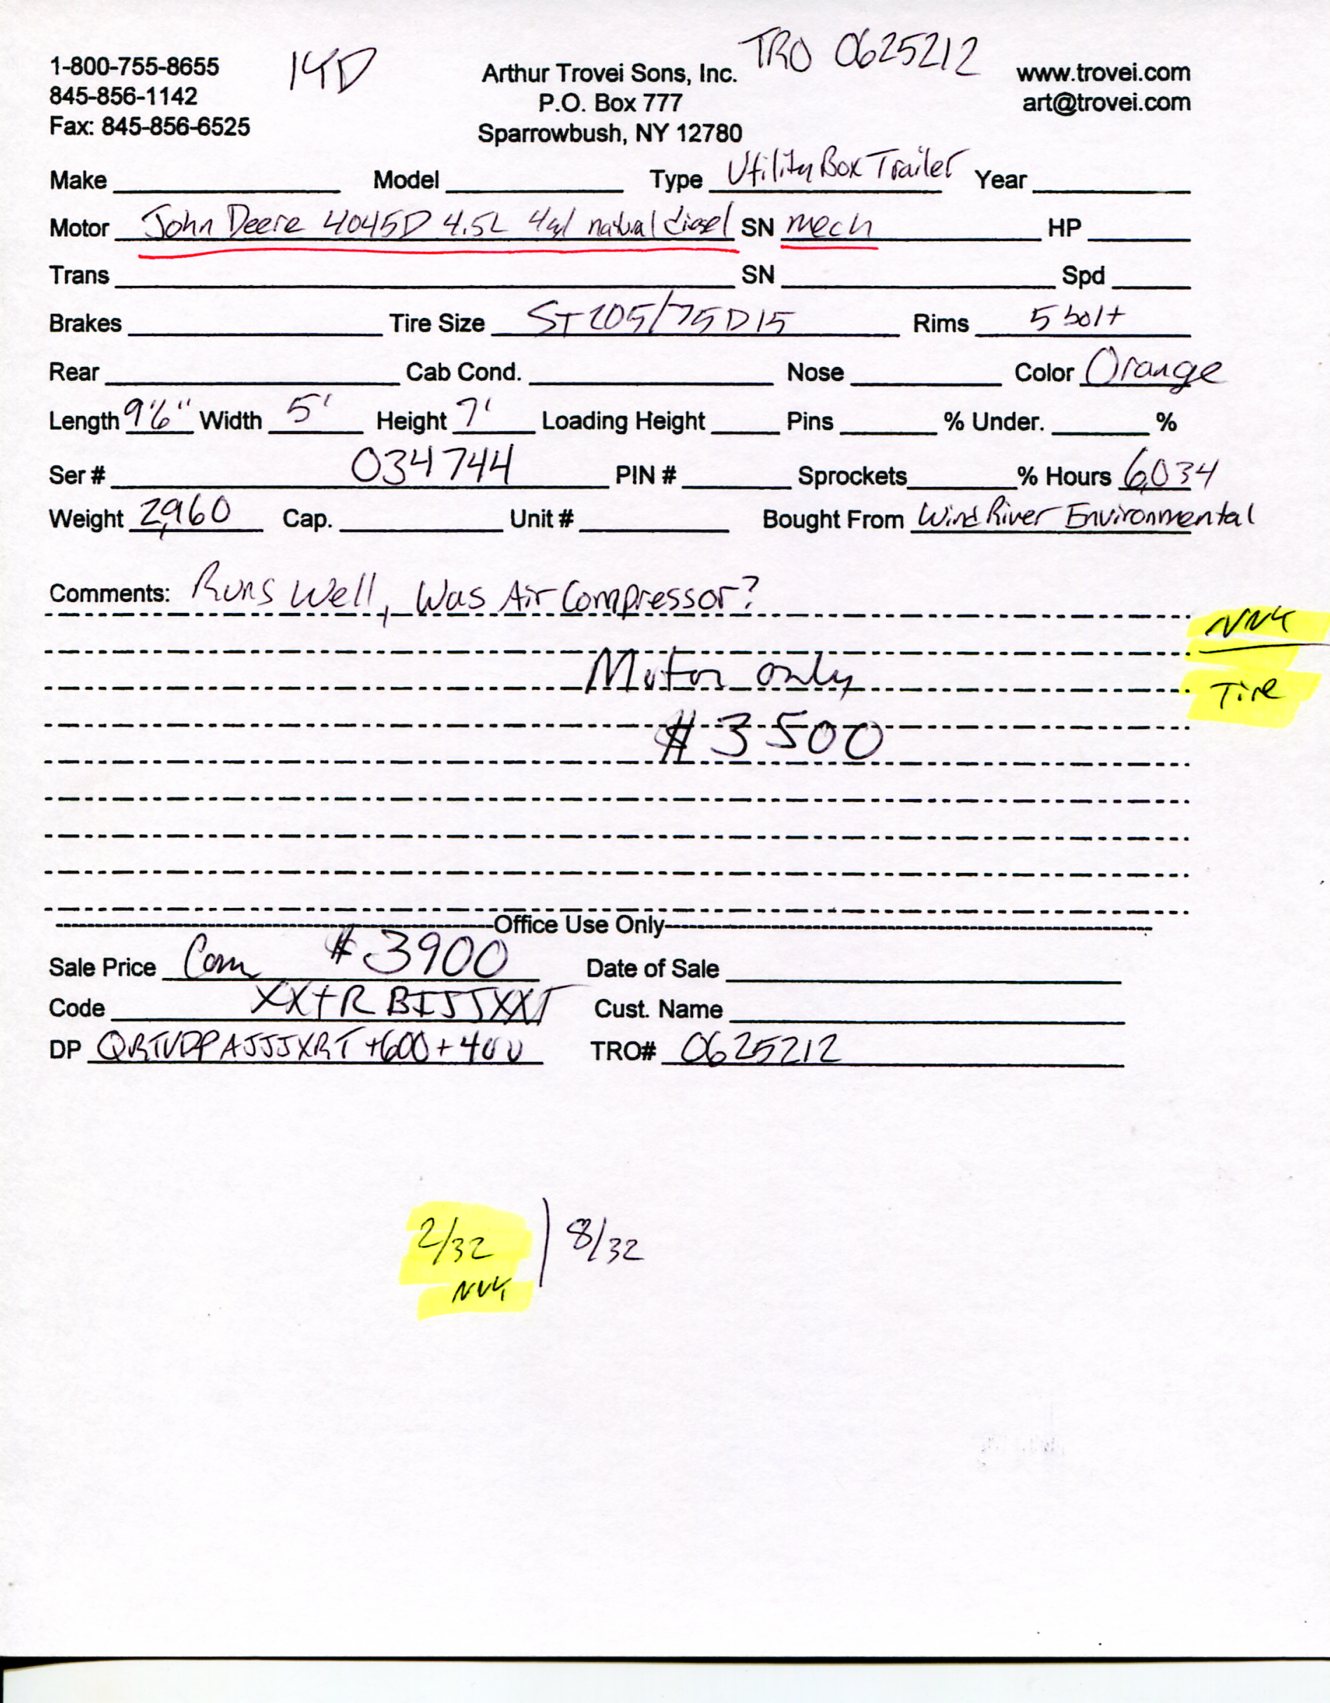 1-800-755-8655
845-856-1142
Fax: 845-856-6525
14D
Arthur Trovei Sons, Inc.
P.O. Box 777
Sparrowbush, NY 12780
TRO 0625212
www.trovei.com
art@trovei.com
Make Model Type Utility Box Trailer Year
Motor John Deere 4045D 4.5L 4cyl natural diesel SN mech HP
Trans SN Spd
Brakes Tire Size ST205/75D15 Rims 5 bolt
Rear Cab Cond. Nose Color Orange
Length 9'6" Width 5' Height 7' Loading Height Pins % Under. %
Ser # 034744 PIN # Sprockets % Hours 6,034
Weight 2,960 Cap. Unit # Bought From Wind River Environmental
Comments: Runs Well, Was Air Compressor?
Tire
Motor only
$3500
Office Use Only
Sale Price Com $3900 Date of Sale
Code XX+RBIJJXXT Cust. Name
DP +600+400 TRO# 0625212
2/32 | 8/32